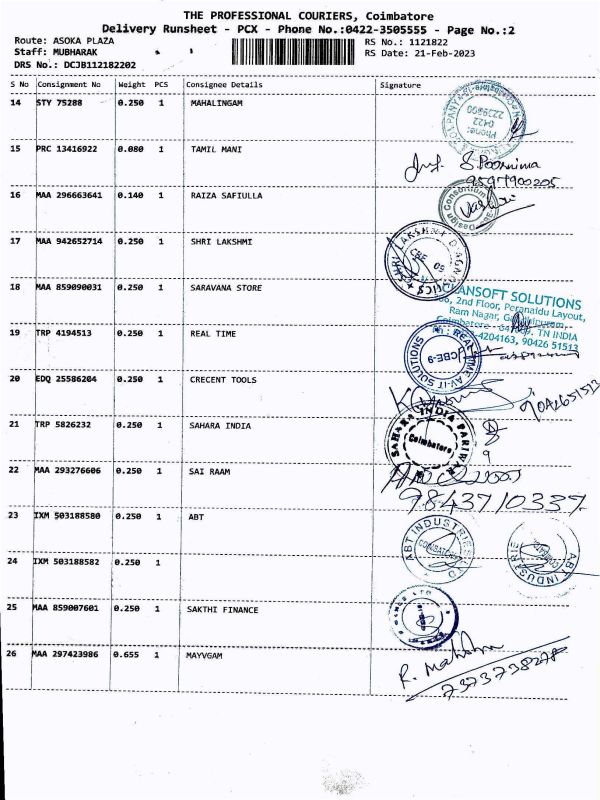 THE PROFESSIONAL COURIERS, Coimbatore
Delivery Runsheet - PCX - Phone No.:0422-3505555 - Page No.:2
Route: ASOKA PLAZA
RS No.: 1121822
Staff: MUBHARAK
RS Date: 21-Feb-2023
DRS No.: DCJB112182202
S No Consignment No Weight PCS Consignee Details Signature
14 STY 75288 0.250 1 MAHALINGAM
Phone: 0422
15 PRC 13416922 0.080 1 TAMIL MANI
S. Poornima
9597900205
16 MAA 296663641 0.140 1 RAIZA SAFIULLA
Design Consortium
17 MAA 942652714 0.250 1 SHRI LAKSHMI
SHRI LAKSHMI DIAGNOSTICS
CBE
18 MAA 859090031 0.250 1 SARAVANA STORE
ANSOFT SOLUTIONS
2nd Floor, Peranaidu Layout,
Ram Nagar,
Coimbatore TN INDIA
4204163, 90426 51513
19 TRP 4194513 0.250 1 REAL TIME
REAL TIME AV-IT SOLUTIONS
CBE-9
20 EDQ 25586204 0.250 1 CRECENT TOOLS
9042651513
21 TRP 5826232 0.250 1 SAHARA INDIA
SAHARA INDIA PARIWAR
Coimbatore
22 MAA 293276606 0.250 1 SAI RAAM
9843710337
23 IXM 503188580 0.250 1 ABT
ABT INDUSTRIES LTD
COIMBATORE
ABT INDUSTRIES
24 IXM 503188582 0.250 1
25 MAA 859007601 0.250 1 SAKTHI FINANCE
26 MAA 297423986 0.655 1 MAYVGAM
7373738278